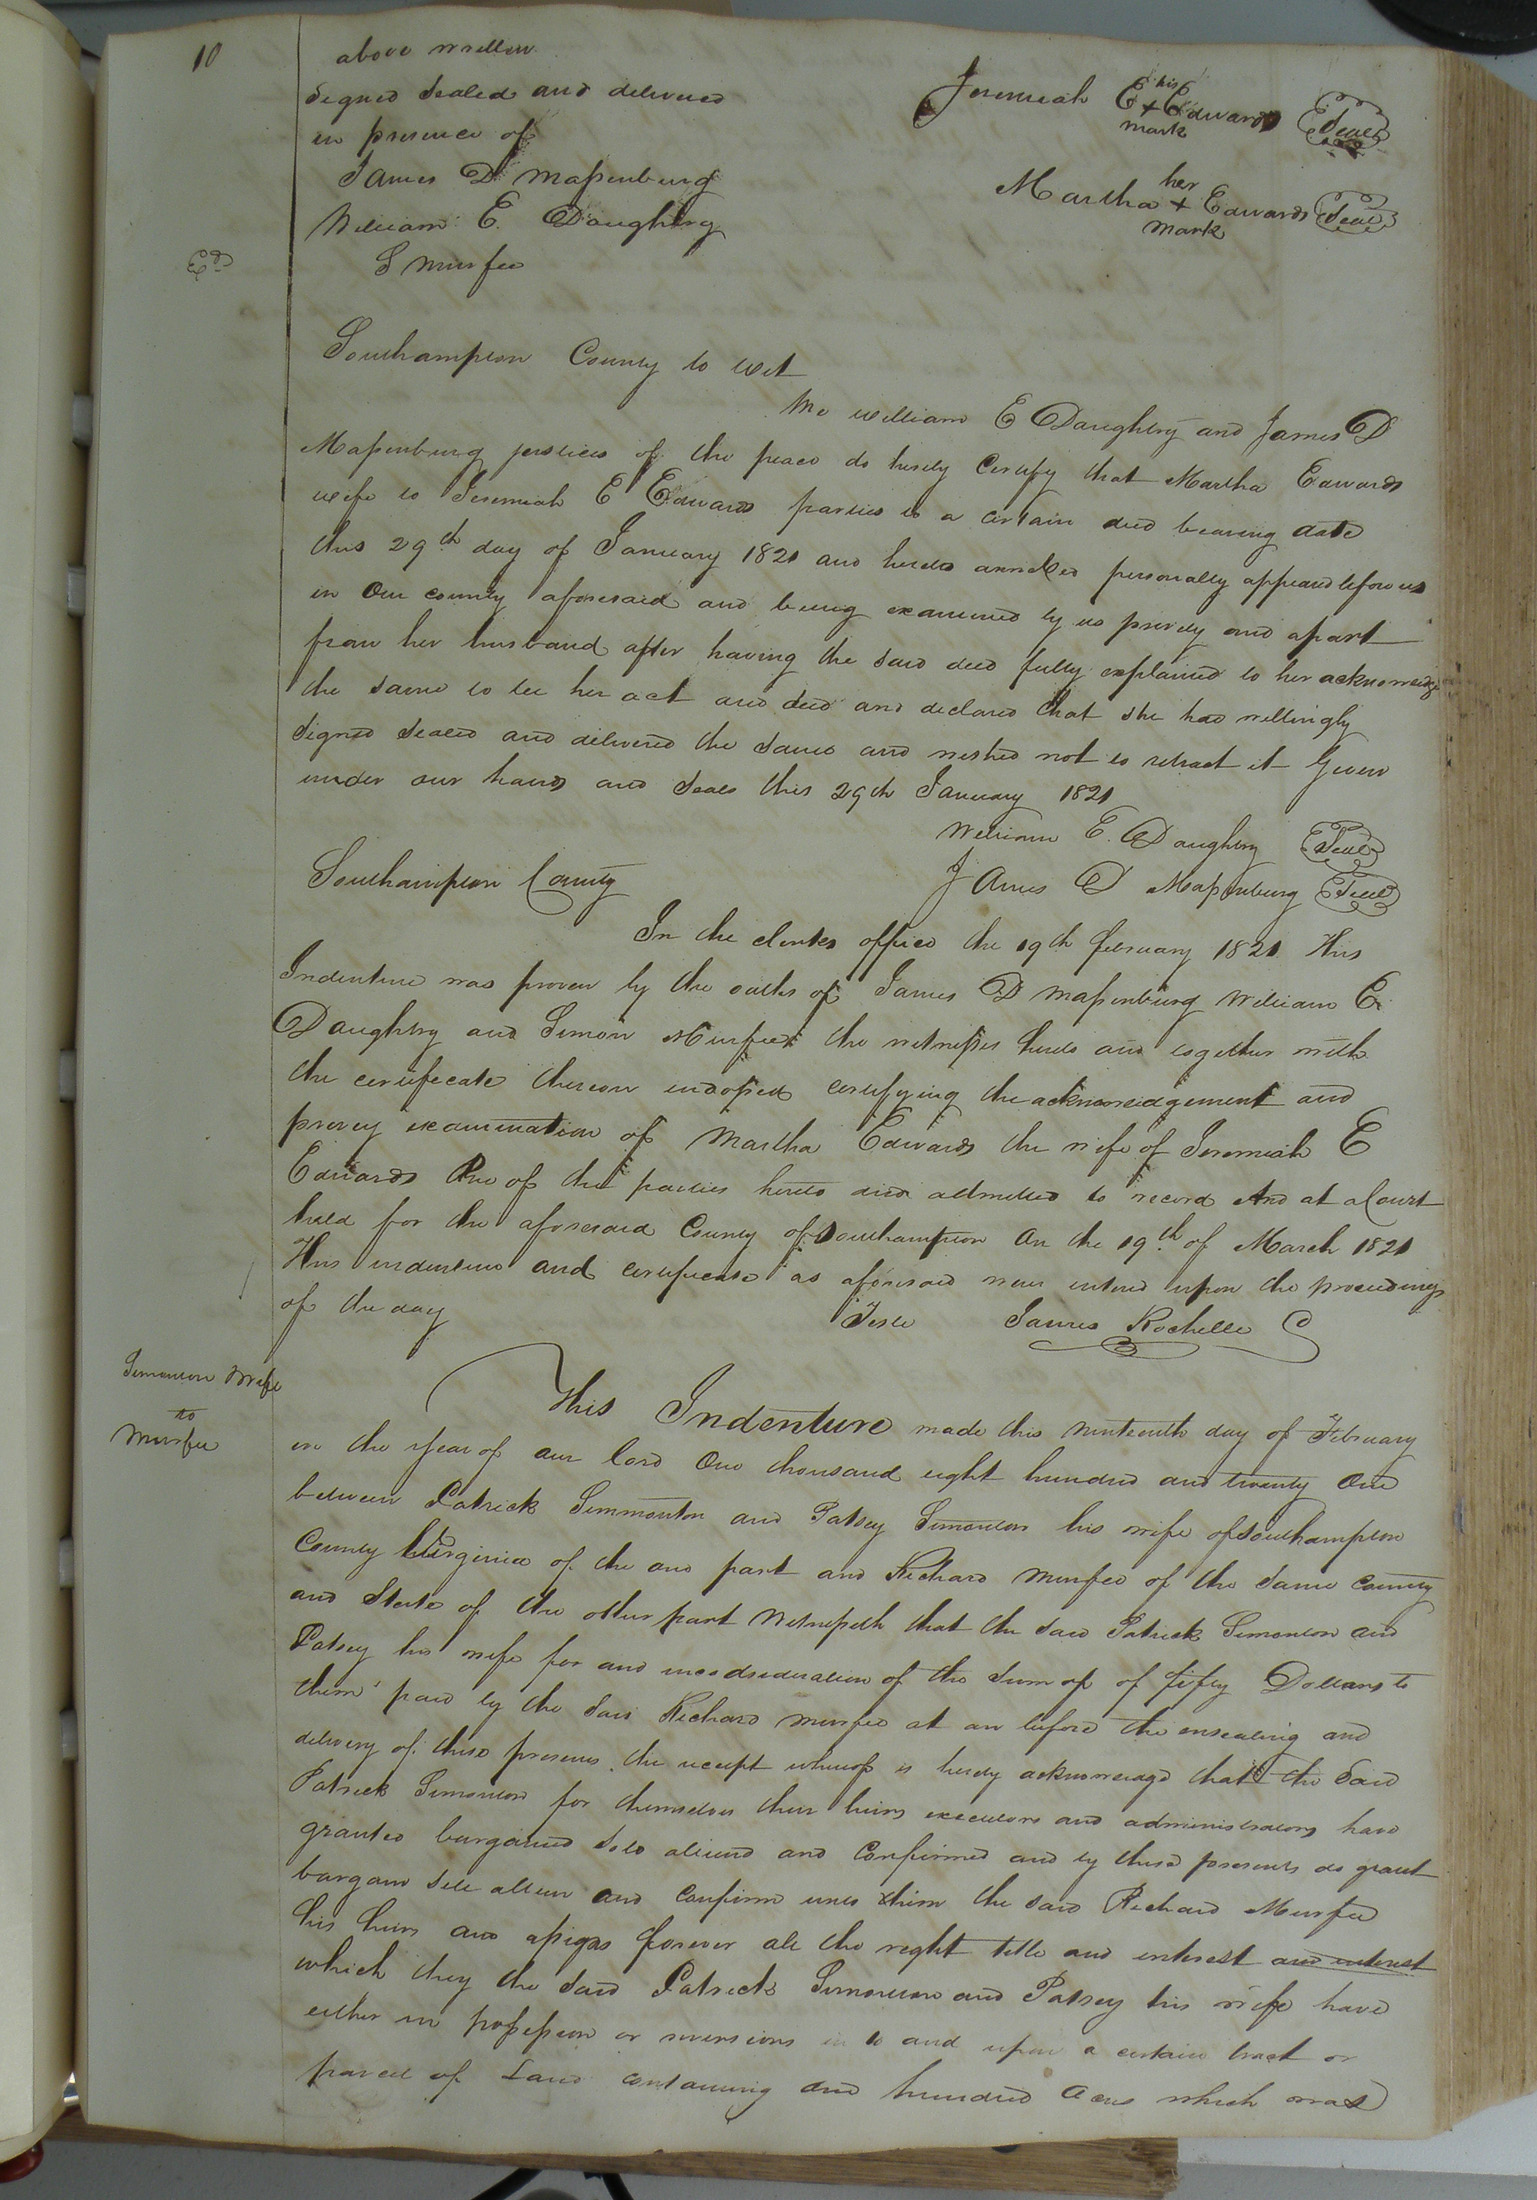 10
above written
Signed Sealed and delivered
in presence of
James D Massenburg
William E. Daughtry
S Murfee
Jeremiah E his + Edwards Seal
mark
Martha her + Edwards Seal
mark
Ed
Southampton County to wit
We William E Daughtry and James D
Massenburg justices of the peace do hereby Certify that Martha Edwards
wife to Jeremiah E Edwards parties to a certain deed bearing date
this 29th day of January 1821 and hereto annexed personally appeard before us
in Our county aforesaid and being examined by us privily and apart
from her husband after having the said deed fully explained to her acknowledge
the same to be her act and deed and declared that she had willingly
Signed Sealed and delivered the same and wished not to retract it Given
under our hands and Seals this 29th January 1821
William E. Daughtry Seal
James D Massenburg Seal
Southampton County
In the clerks office the 19th february 1821 This
Indenture was proven by the oaths of James D Massenburg William E.
Daughtry and Simon Murfee the witnesses hereto and together with
the certificate thereon indorsed certifying the acknowledgement and
privy examination of Martha Edwards the wife of Jeremiah E
Edwards One of the parties hereto and admitted to record And at a Court
held for the aforesaid County of Southampton On the 19th of March 1821
This indenture and certificate as aforesaid was entered upon the proceedings
of the day
Teste James Rochelle C
Simonton & Wife
to
Murfee
This Indenture made this nineteenth day of February
in the year of our lord One thousand eight hundred and twenty One
between Patrick Simmonton and Patsey Simonton his wife of Southampton
County Virginia of the one part and Richard Murfee of the Same County
and State of the other part Witnesseth that the said Patrick Simonton and
Patsey his wife for and in considseration of the Sum of of fifty Dollars to
them paid by the said Richard Murfee at or before the ensealing and
delivery of these presents the receipt whereof is hereby acknowledge that the Said
Patrick Simonton for themselves their heirs executors and administrators have
granted bargained Sold aliend and Confirmed and by these presents do grant
bargain sell alien and Confirm unto him the said Richard Murfee
his heirs and assigns forever all the right title and interest and interest
which they the said Patrick Simonton and Patsey his wife have
either in possession or reversions in to and upon a certain tract or
parcel of Land containing one hundred Acres which was